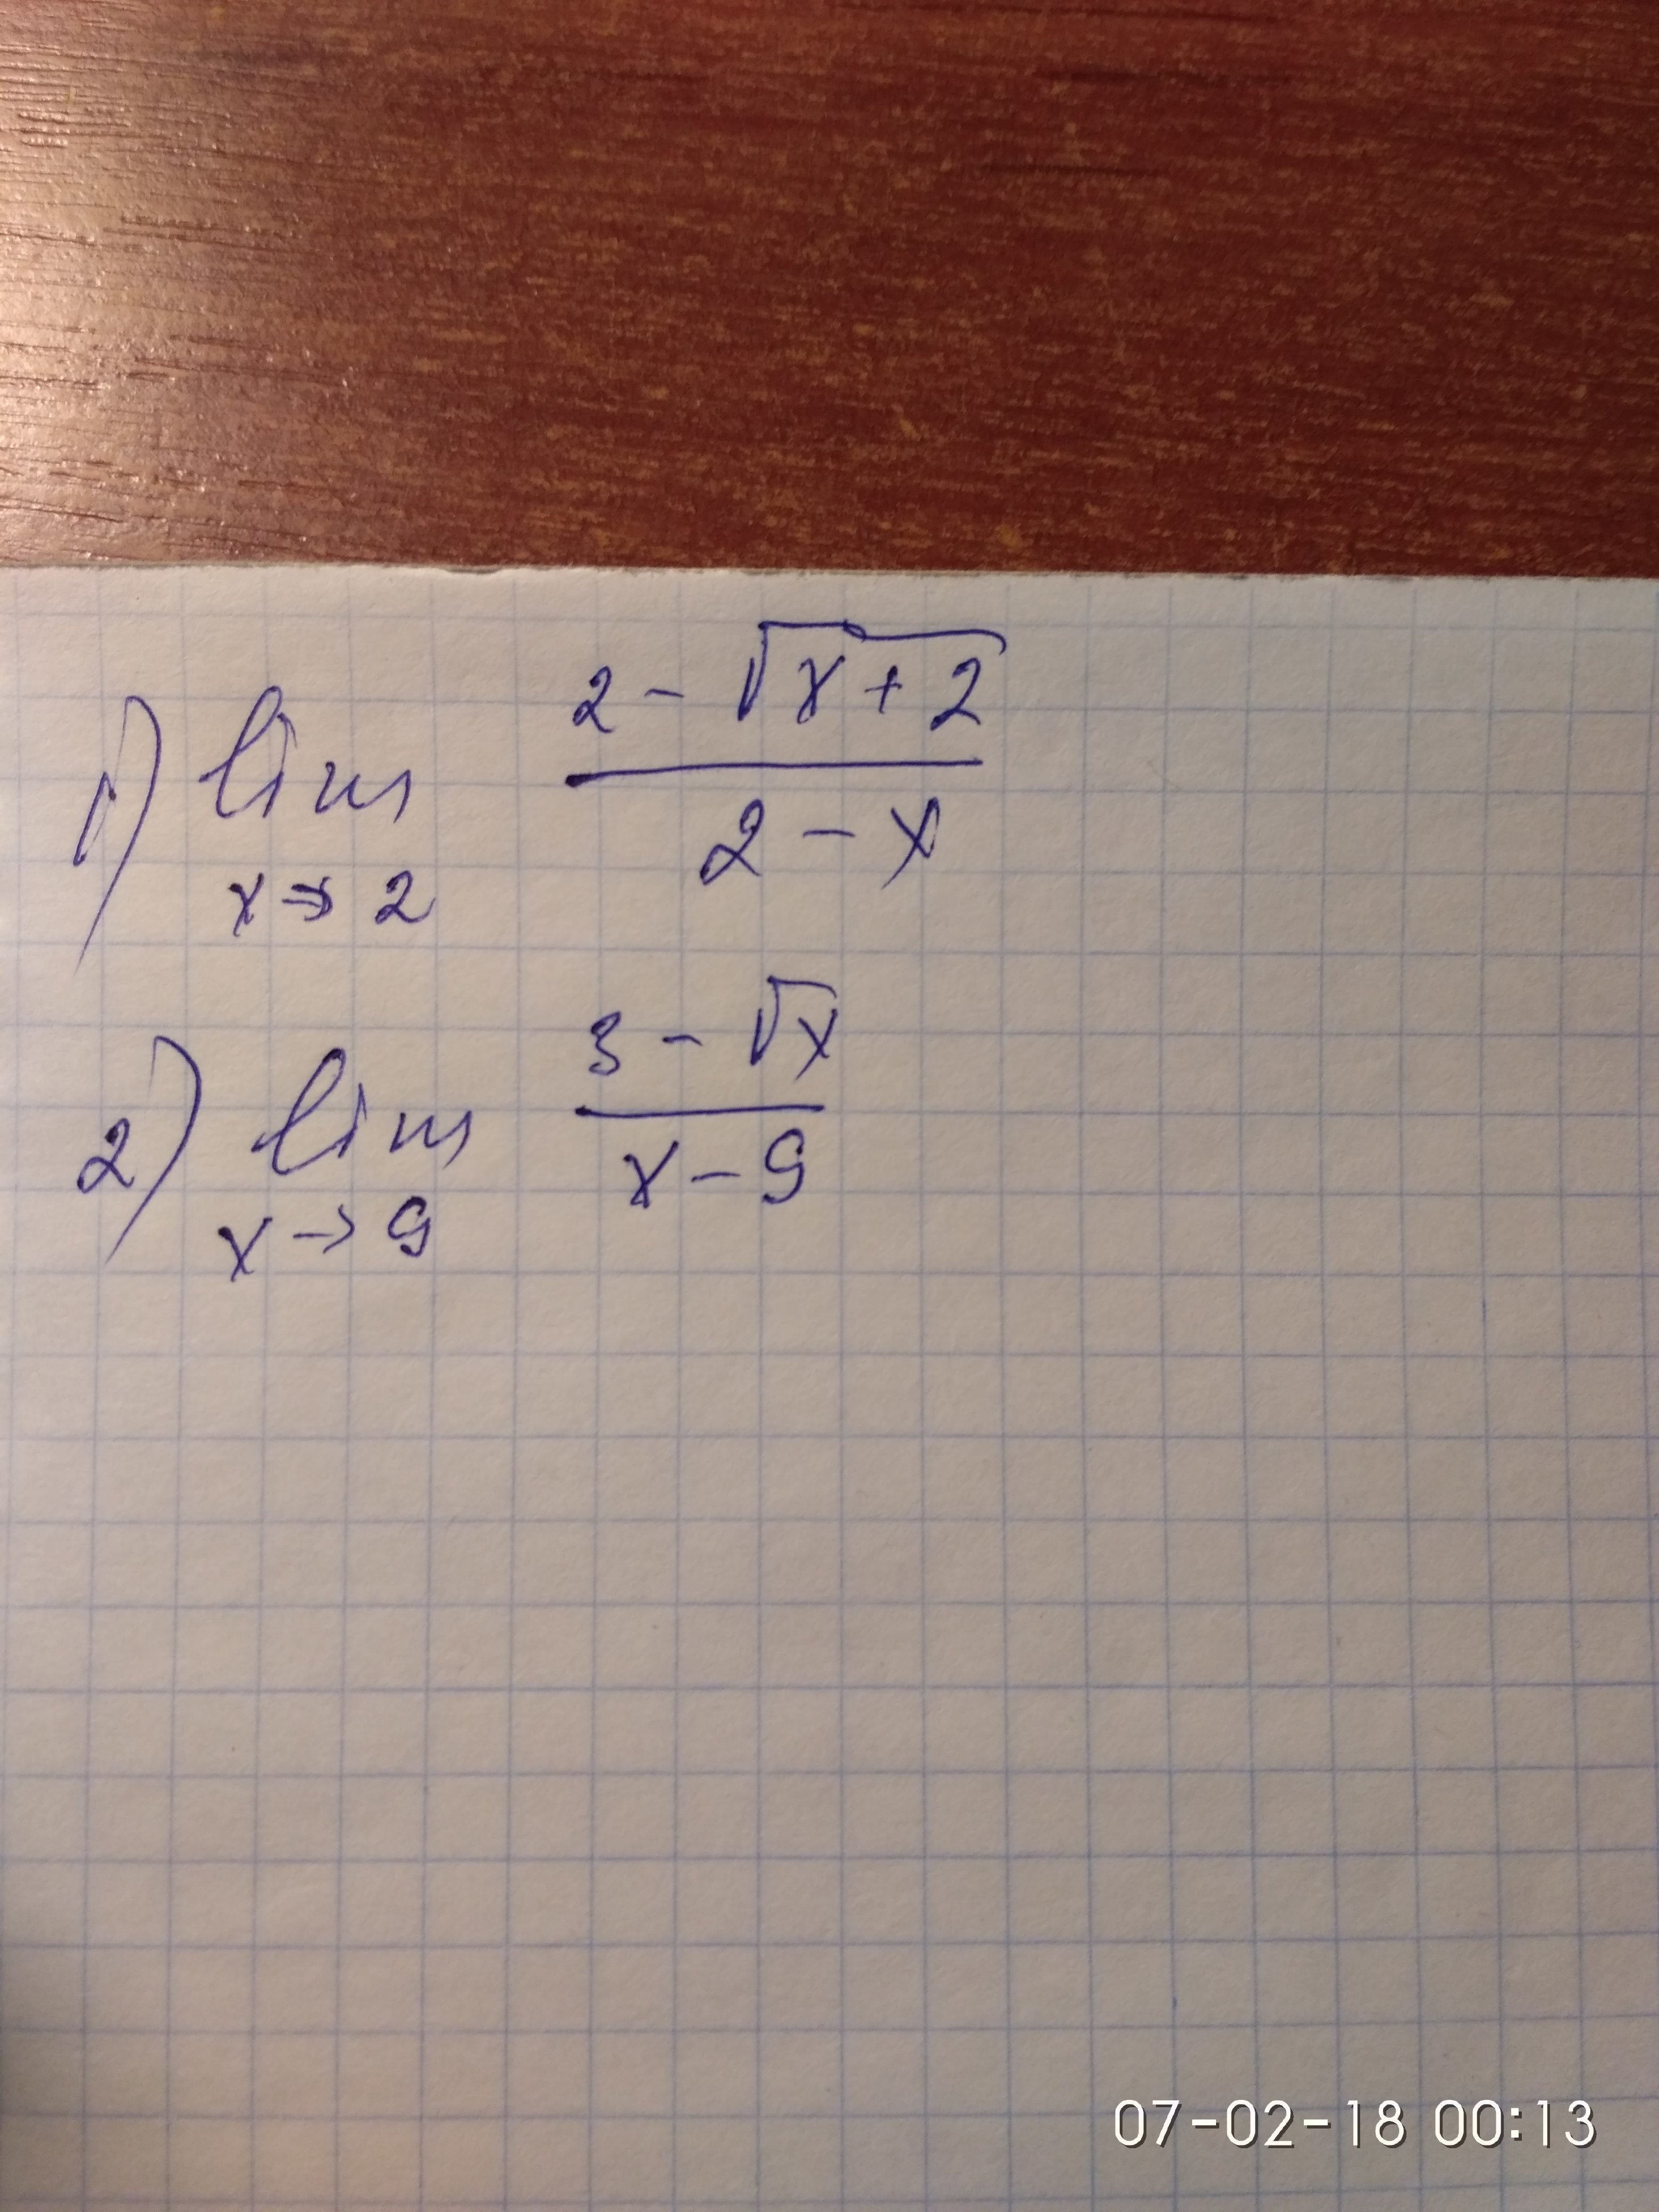 1) lim x→2 (2 - √(x+2)) / (2 - x)
2) lim x→9 (3 - √x) / (x - 9)
07-02-18 00:13